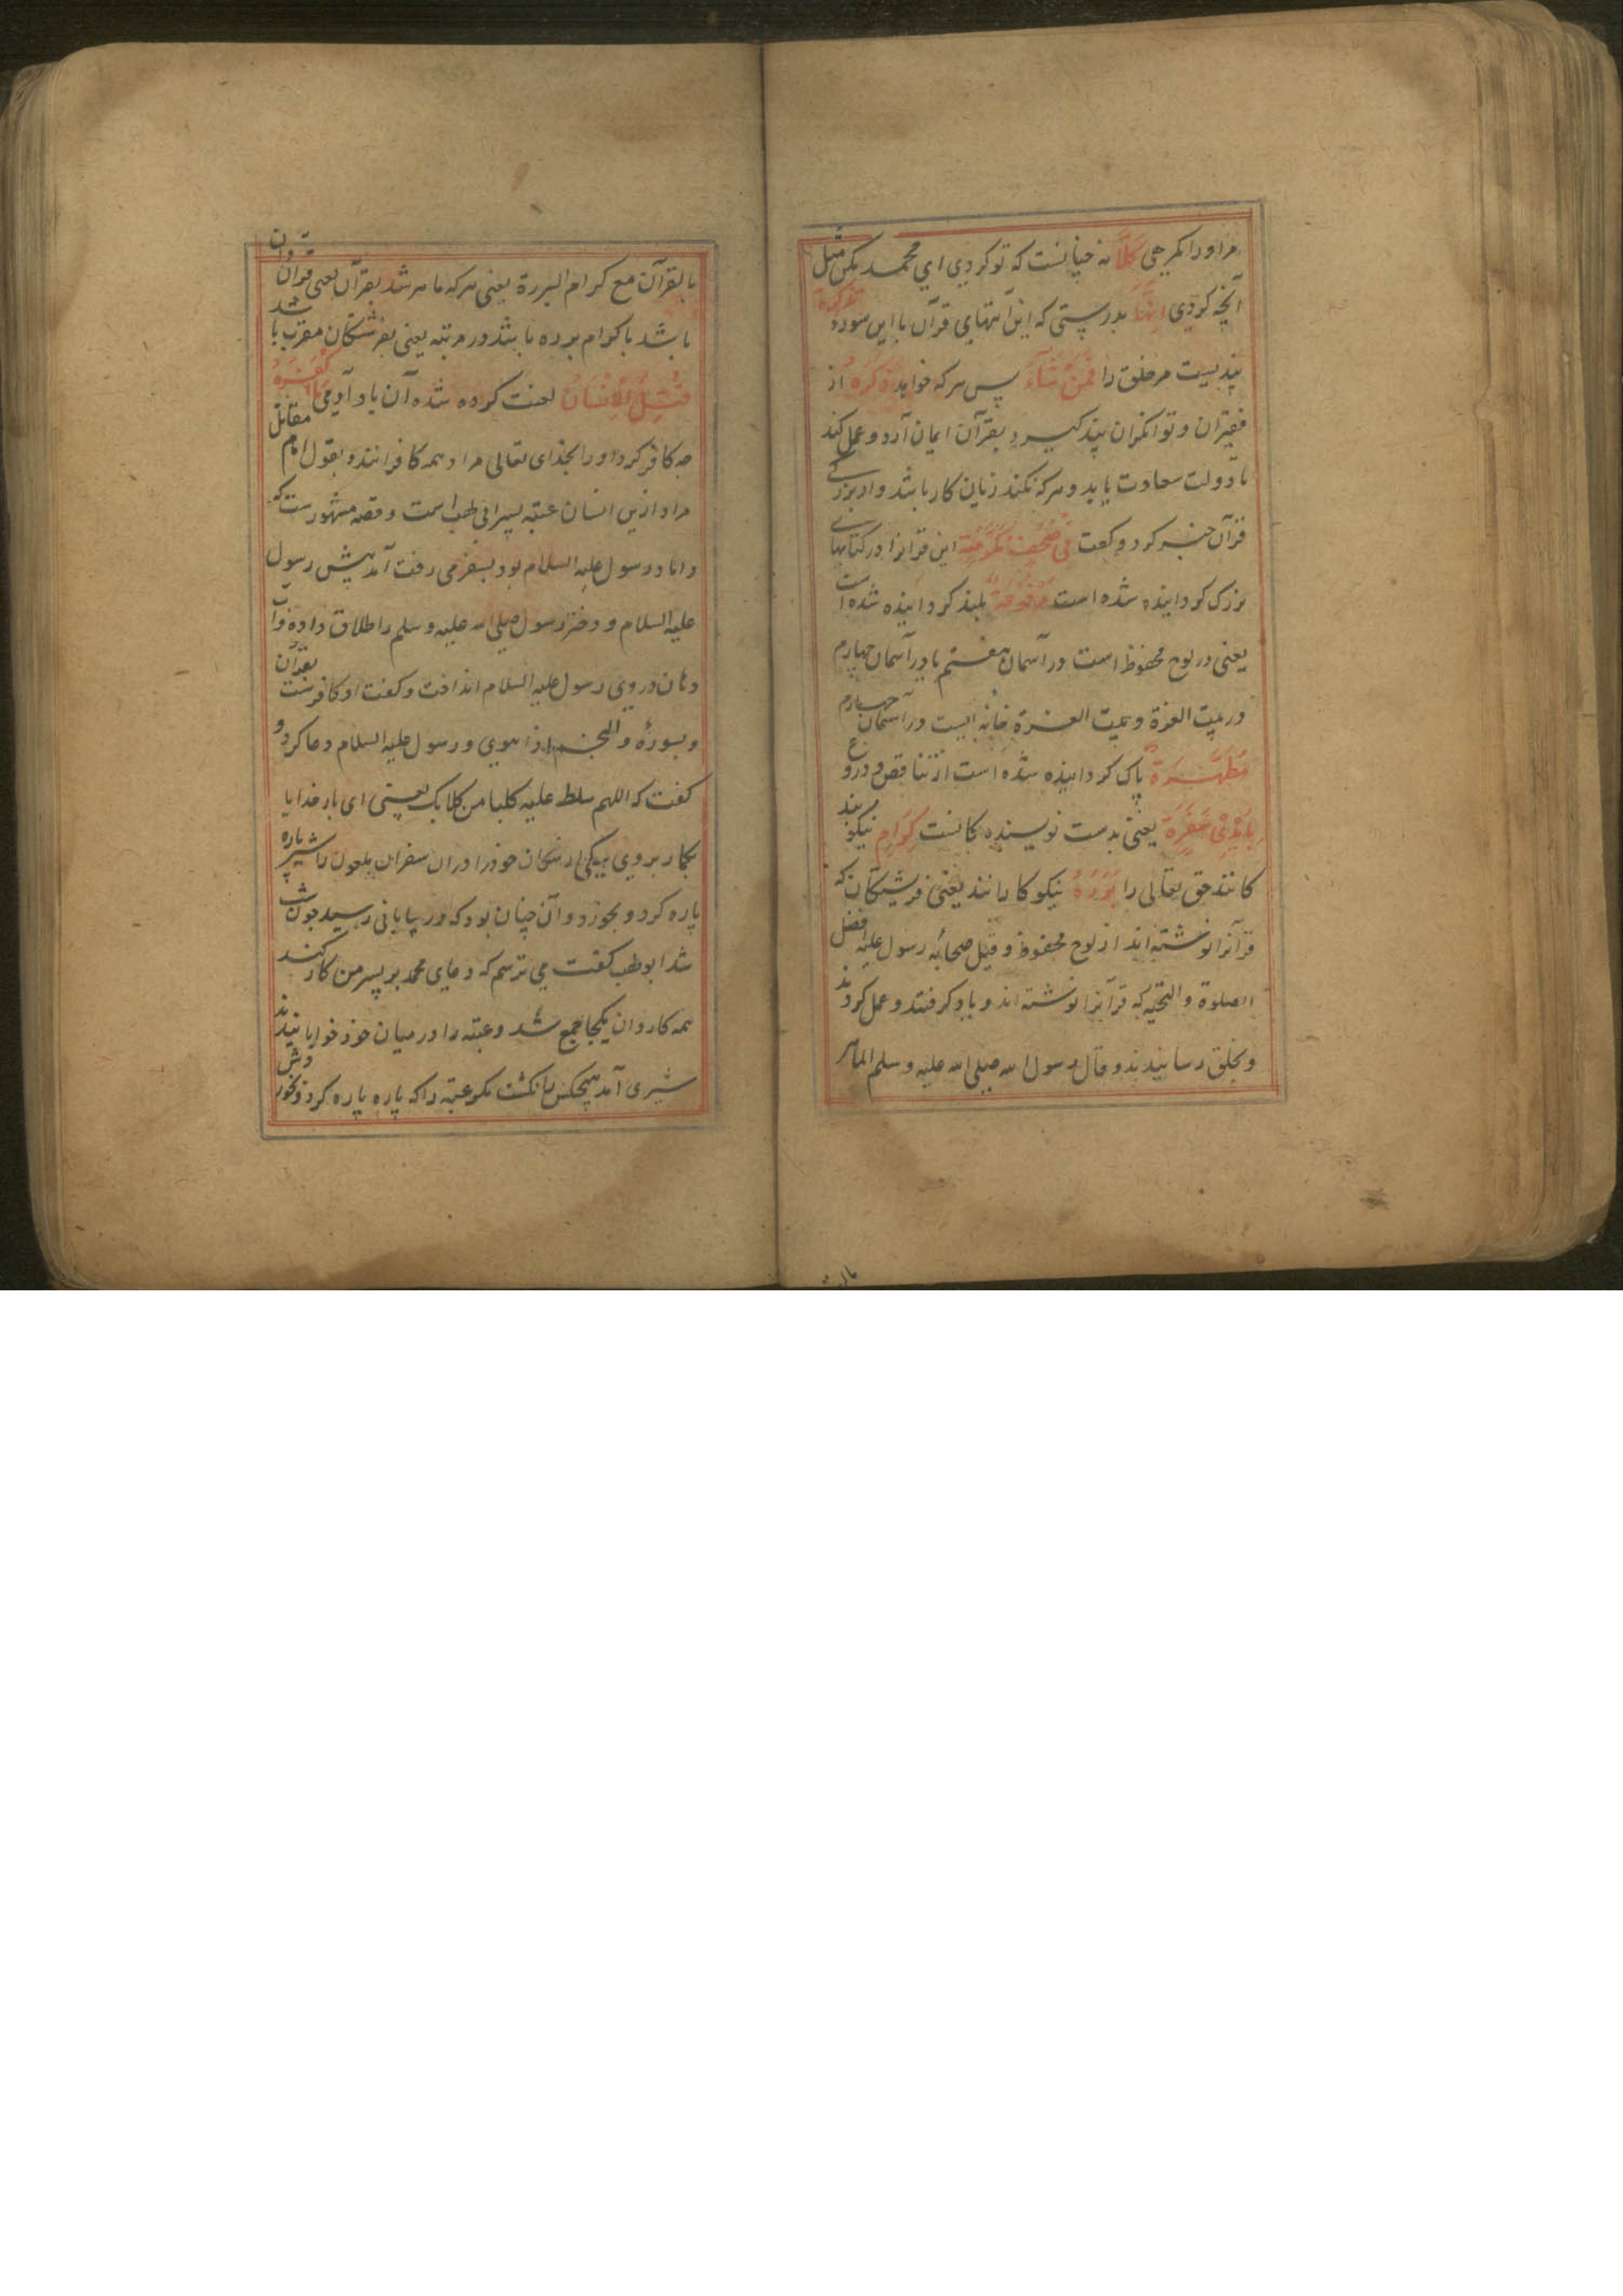 مر او را مکر هی كَلَّا نه چنانست که تو کردی ای محمد مکن مثل
آنچه کردی اِنَّهَا بدرستی که این آیتهای قرآن با این سوره تَذْكِرَةٌ
پندیست مر خلق را فَمَنْ شَآءَ پس هر که خواهد ذَكَرَهُ از
فقیران و توانکران پند کیرد بقرآن ایمان آرد و عمل کند
تا دولت سعادت یابد و هر که نکند زیان کار باشد و از بزرکی
قرآن خبر کرد و کفت فِي صُحُفٍ مُكَرَّمَةٍ این قرآنرا در کتابهای
بزرک کردانیده شده است مَرْفُوعَةٍ بلند کردانیده شده است
یعنی در لوح محفوظ است در آسمان هفتم یا در آسمان چهارم
در بیت العزة و بیت العزة خانه ایست در آسمان چهارم
مُطَهَّرَةٍ پاک کردانیده شده است از تناقض و دروغ
بِاَيْدِيْ سَفَرَةٍ یعنی بدست نویسنده کانست كِرَامٍ نیکو بند
کانند حق تعالی را بَرَرَةٍ نیکو کارانند یعنی فرشتکان که
قرآنرا نوشته اند از لوح محفوظ و قیل صحابه رسول علیه افضل
الصلوة والتحیه که قرآنرا نوشته اند و یاد کرفتند و عمل کردند
و بخلق رسانیدند و قال رسول الله صلی الله علیه و سلم الماهر
بالقرآن مع کرام البررة یعنی هر که ماهر شد بقرآن یعنی قرآن دان
باشد با کرام برده باشد در مرتبه یعنی بفرشتکان مقرب باشد
قُتِلَ الْاِنْسَانُ لعنت کرده شده آن باد آدمی مَا اَكْفَرَهُ
چه کافر کرد او را بخدای تعالی مراد همه کافرانند و بقول امام مقاتل
مراد ازین انسان عتبه پسر ابی لهب است و قصه مشهورست که
داماد رسول علیه السلام بود بسفر می رفت آمد پیش رسول
علیه السلام و دختر رسول صلی الله علیه و سلم را طلاق داده و آب
دهان در روی رسول علیه السلام انداخت و کفت او کافرست بقرآن
و بسورهٔ والنجم اذا هوی و رسول علیه السلام دعا کرد و
کفت که اللهم سلط علیه کلبا من کلابک یعنی ای بار خدایا
بکمار بروی یکی از سکان خود را در ان سفر ان ملعون را شیر پاره
پاره کرد و بخورد و آن چنان بود که در بیابانی رسید چون شب
شد ابو لهب کفت می ترسم که دعای محمد بر پسر من کار کند
همه کاروان یکجا جمع شد و عتبه را در میان خود خوابانیدند
شیری آمد هیچکس را نکشت مکر عتبه را که پاره پاره کرد و بخوردش